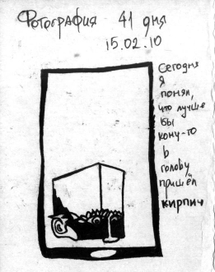 Фотография 41 дня
15.02.10
Сегодня
я
понял,
что лучше
бы
кому-то
в
голову
пришёл
кирпич